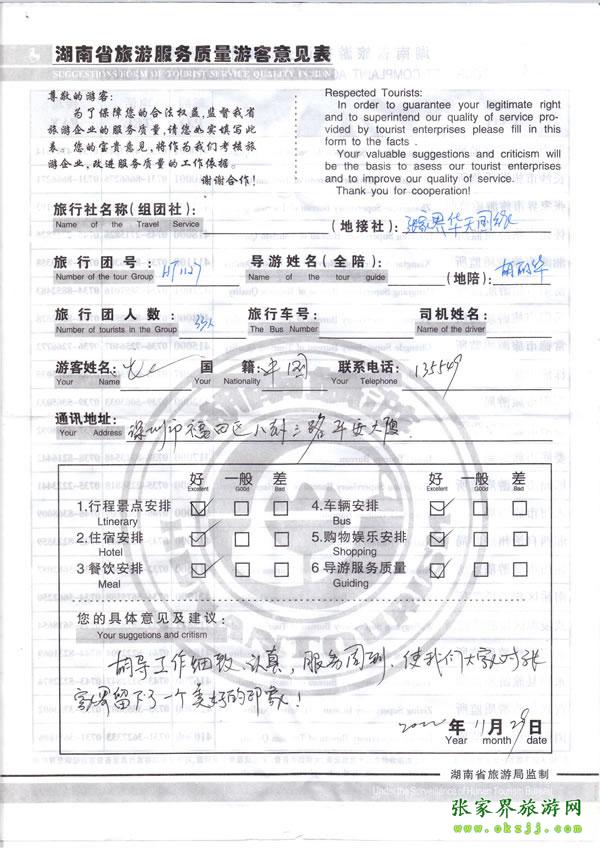 湖南省旅游服务质量游客意见表
SUGGESTIONS FORM OF TOURIST SERVICE QUALITY IN HUN
尊敬的游客:
为了保障您的合法权益,监督我省
旅游企业的服务质量,请您如实填写此
表。您的宝贵意见,将作为我们考核旅
游企业,改进服务质量的工作依据。
谢谢合作!
Respected Tourists:
In order to guarantee your legitimate right
and to superintend our quality of service pro-
vided by tourist enterprises please fill in this
form to the facts .
Your valuable suggestions and criticism will
be the basis to assess our tourist enterprises
and to improve our quality of service.
Thank you for cooperation!
旅行社名称(组团社): (地接社): 张家界华天国旅
Name of the Travel Service
旅行团号: HT1127 导游姓名(全陪): (地陪):
Number of the tour Group Name of the tour guide
旅行团人数: 33人 旅行车号: 司机姓名:
Number of tourists in the Group The Bus Number Name of the driver
游客姓名: 国籍: 中国 联系电话: 135549
Your Name Your Nationality Your Telephone
通讯地址: 深圳市福田区八卦三路平安大厦
Your Address
好 一般 差 好 一般 差
Excellent Good Bad Excellent Good Bad
1.行程景点安排 4.车辆安排
Ltinerary Bus
2.住宿安排 5.购物娱乐安排
Hotel Shopping
3.餐饮安排 6 导游服务质量
Meal Guiding
您的具体意见及建议:
Your suggetions and critism
胡导工作细致、认真,服务周到,使我们大家对张
家界留下了一个美好的印象!
年 11 月 29 日
Year month date
湖南省旅游局监制
Under the Surveillance of Hunan Tourism Bureau
张家界旅游网
www.okzjj.com